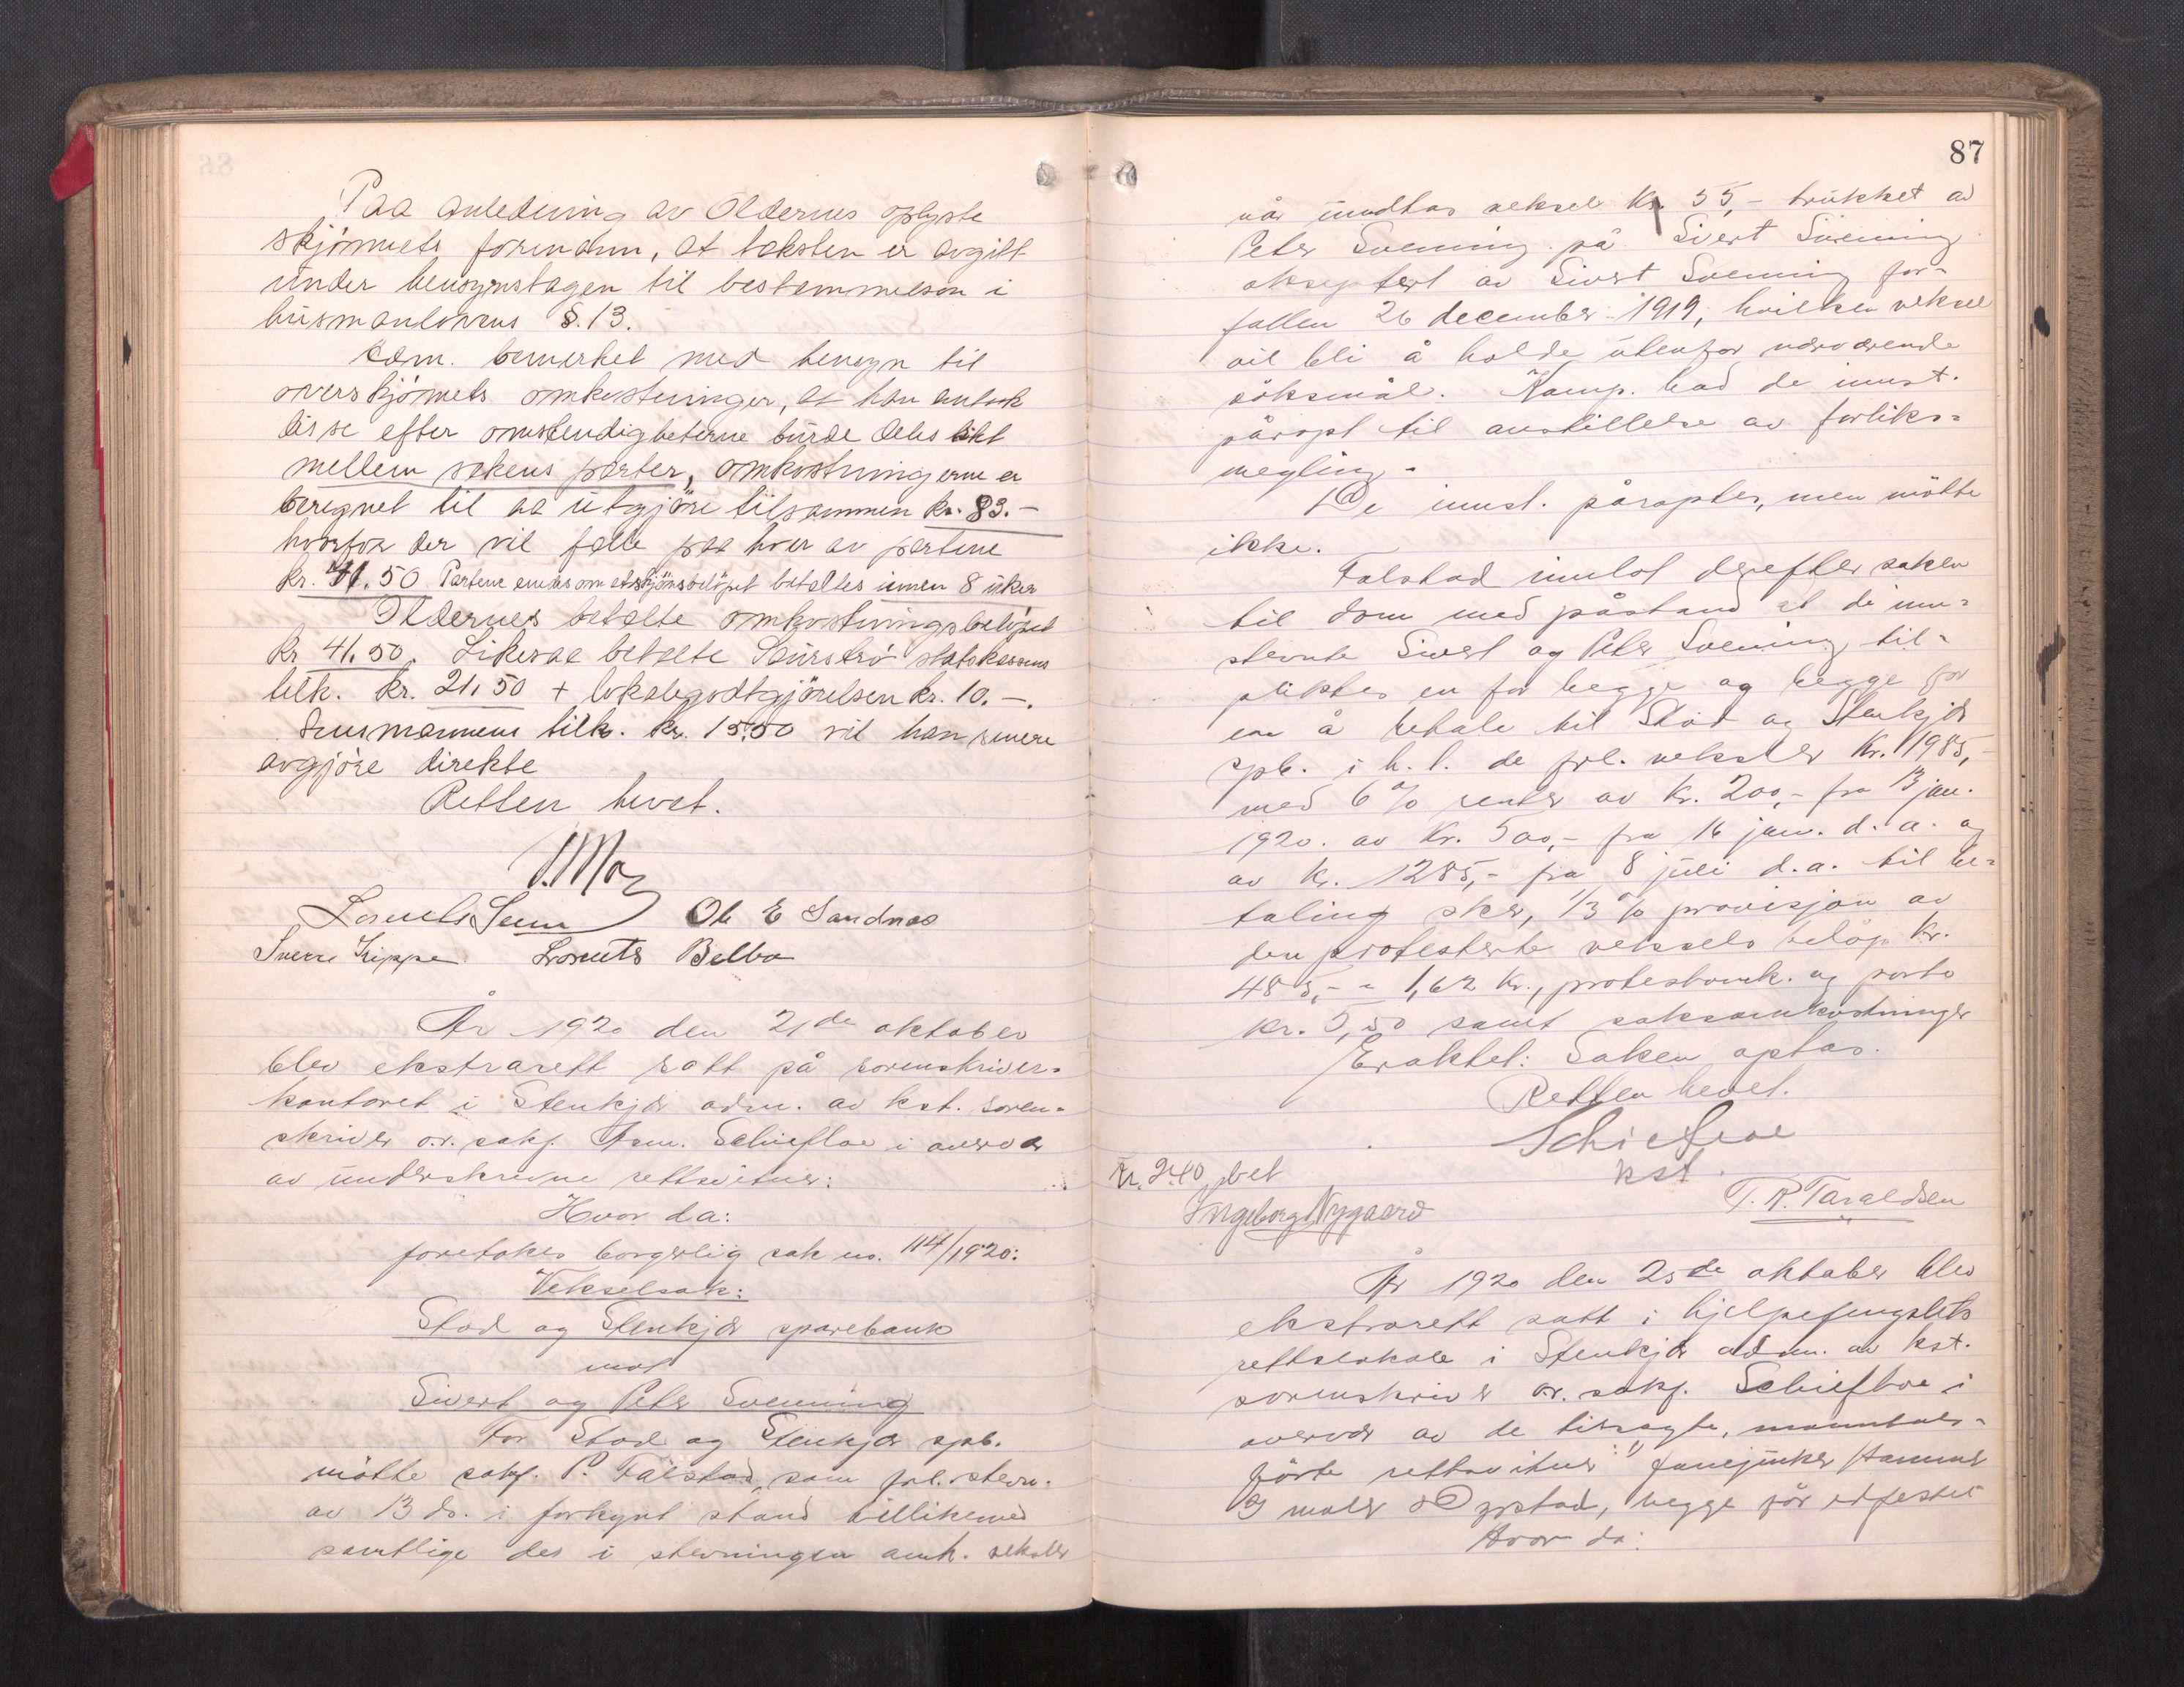 Paa anledning av Oldernes oplyste
skjønnets formann, at taksten er avgitt
under hensynstagen til bestemmelsen i
husmanlovens §. 13.
Adm. bemerket med hensyn til
overskjønnets omkostninger, at han antok
disse efter omstendigheterne burde deles likt
mellem sakens parter, omkostningerne er
beregnet til aa utgjøre tilsammen kr. 83.-
hvorfor der vil falle paa hver av partene
kr. 41.50 Partene enedes om at skjønsbeløpet betaltes innen 8 uker
Oldernes betalte omkostningsbeløpet
kr 41.50. Likesaa betalte statskassens
tilk. kr. 21,50 + lokalegodtgjørelsen kr. 10.-.
Lensmannens tilk. kr. 15.50 vil han senere
avgjøre direkte
Retten hevet.
Ole E Sandnæs
Sverre Kippe Lorents Belbo
År 1920 den 21de oktober
blev ekstrarett satt på sorenskriver-
kontoret i Stenkjær adm. av kst. soren-
skriver o.r. sakf. Schiefloe i overvær
av underskrevne rettsvitner:
Hvor da:
foretokes borgerlig sak nr. 114/1920:
Vekselsak:
Stod og Stenkjær sparebank
mot
Sivert og Peter Svenning
For Stod og Stenkjær spb.
møtte sakf. P. Falstad, som frl. stevn.
av 13 ds. i forkynt stand tillikemed
samtlige der i stevningen omh. veksler
87
når undtas veksel kr. 55,- trukket av
Peter Svenning på Sivert Svenning
akseptert av Sivert Svenning for-
fallen 26 december 1919, hvilken veksel
vil bli å holde utenfor nærværende
søksmål. Komp. bad de innst.
påropt til anstillelse av forliks-
megling.
De innst. påroptes, men møtte
ikke.
Falstad innlot derefter saken
til dom med påstand at de inn-
stevnte Sivert og Peter Svenning til-
pliktes en for begge og begge for
en å betale til Stod og Stenkjær
spb. i h. t. de frl. veksler kr. 1985,-
med 6% renter av kr. 200,- fra 13 jan.
1920. av kr. 500,- fra 16 jan. d. a. og
av kr. 1285,- fra 8 juli d.a. til be-
taling sker, 1/3 % provisjon av
den protesterte veksels beløp kr.
485,- = 1,62 kr., protestomk. og porto
kr. 5,50 samt saksomkostninger
Eraktet: Saken optas.
Retten hevet.
Schiefloe
kst.
Kr. 2.40 bet
Ingeborg Nygaard
T. R. Taraldsen
År 1920 den 25de oktober blev
ekstrarett satt i hjelpefengslets
rettslokale i Stenkjær adm. av kst.
sorenskriver o.r. sakf. Schiefloe i
overvær av de tilsagte, manntals-
førte rettsvitner: fanejunker Hammer
og maler Ørstad, begge før edfestet
Hvor da: